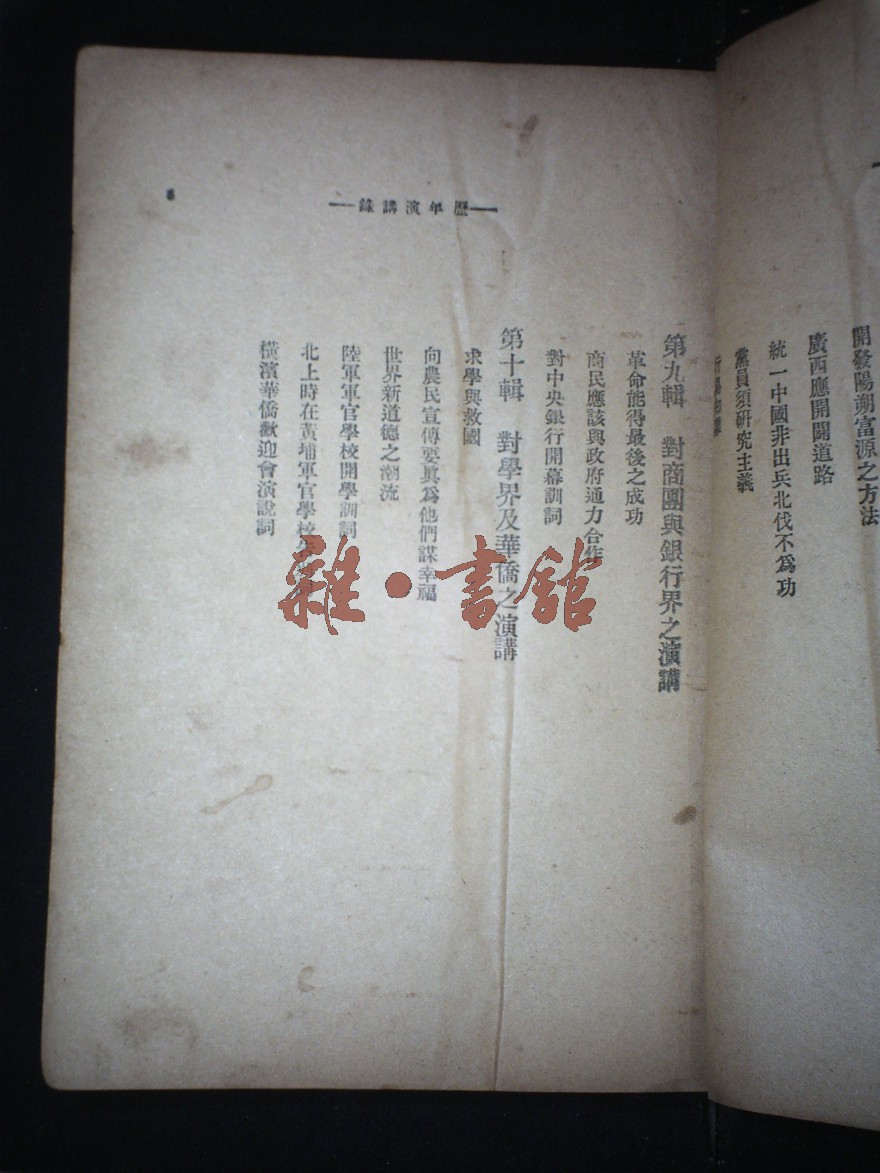 開發陽朔富源之方法
廣西應開闢道路
統一中國非出兵北伐不爲功
黨員須研究主義
歷年演講錄
第九輯 對商團與銀行界之演講
革命能得最後之成功
商民應該與政府通力合作
對中央銀行開幕訓詞
第十輯 對學界及華僑之演講
求學與救國
向農民宣傳要眞爲他們謀幸福
世界新道德之潮流
陸軍軍官學校開學訓詞
北上時在黃埔軍官學校
橫濱華僑歡迎會演說詞
雜·書館